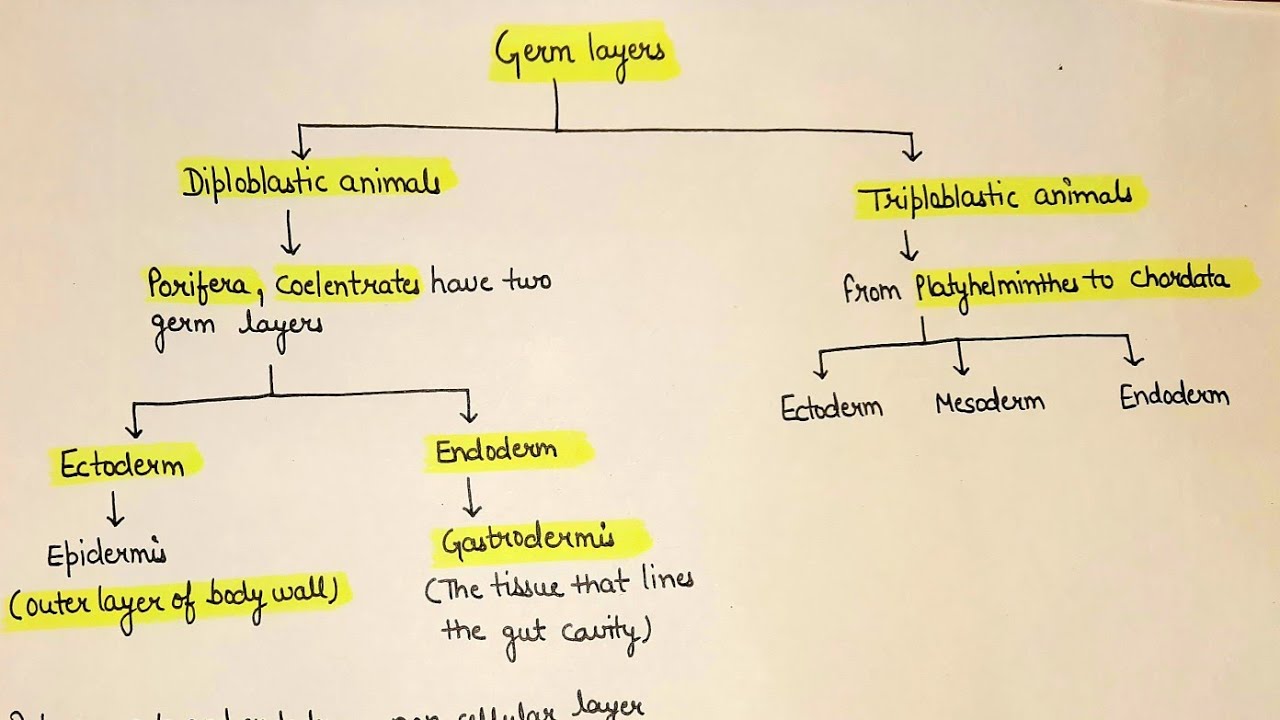 Germ layers
Diploblastic animals
Porifera, Coelentrates have two
germ layers
Ectoderm
Epidermis
(outer layer of body wall)
Endoderm
Gastrodermis
(The tissue that lines
the gut cavity)
Triploblastic animals
from Platyhelminthes to Chordata
Ectoderm Mesoderm Endoderm
non cellular layer